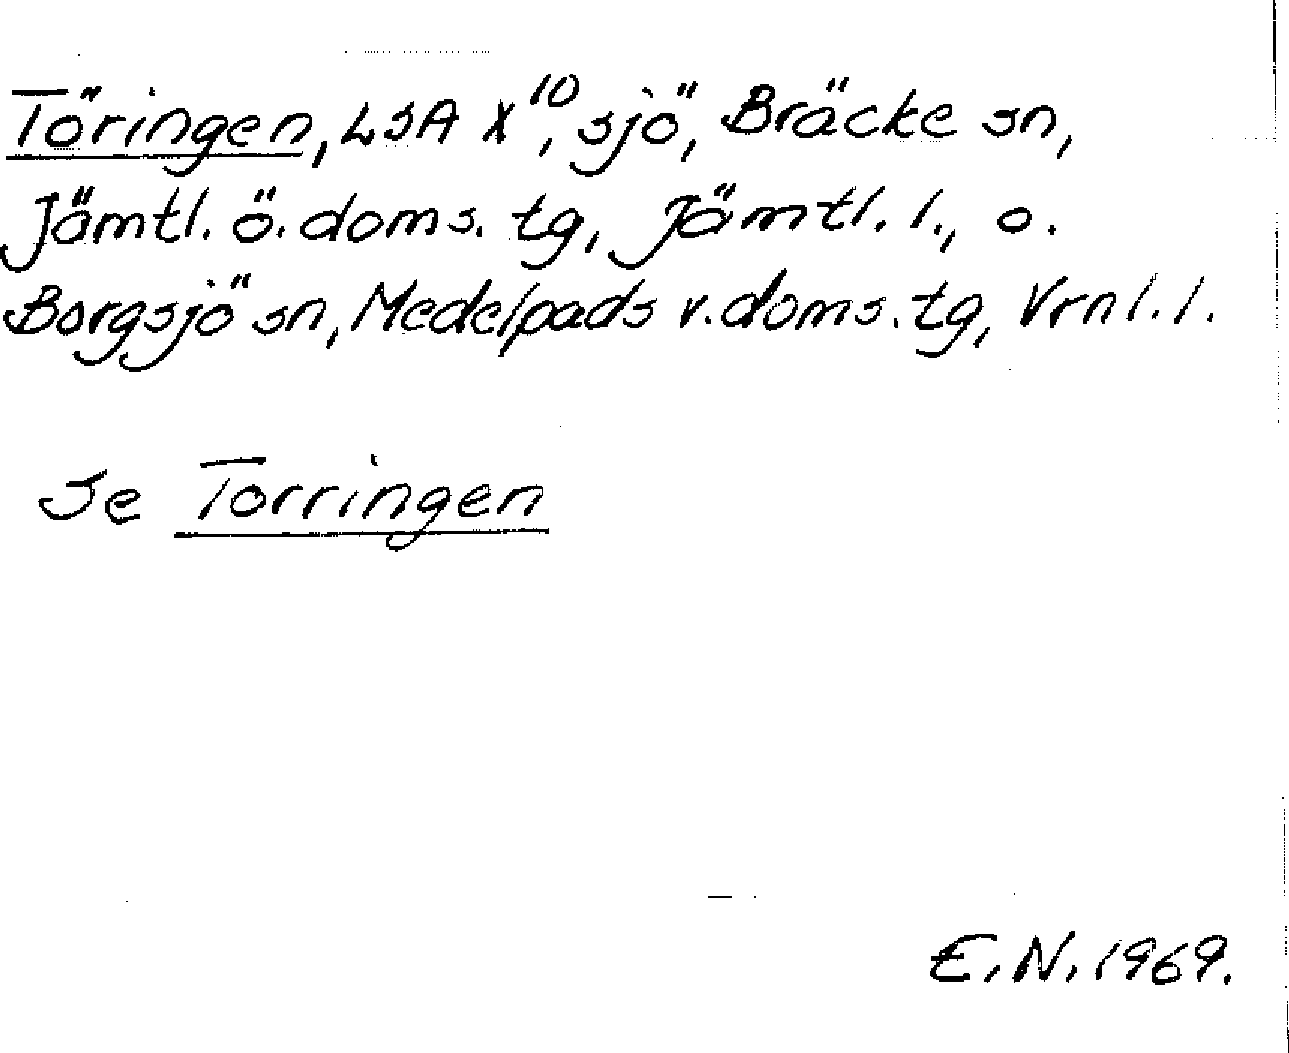 Töringen, LSA X¹⁰, sjö, Bräcke sn,
Jämtl. ö. doms. tg, Jämtl. l., o.
Borgsjö sn, Medelpads v. doms. tg, Vrnl. l.
Se Torringen
E. N. 1969.